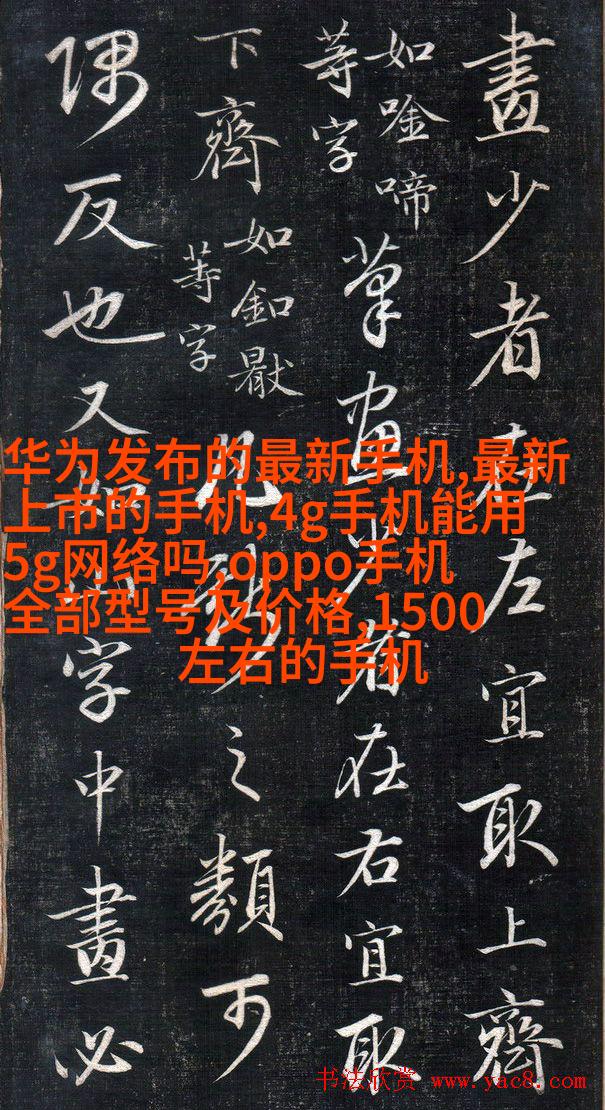 畫少者在左宜取上齊
如唫啼
等字
筆畫少者在右宜取
下齊
如釦
等字
凡之類可
隅反也又如字中畫必
华为发布的最新手机,最新
上市的手机,4g手机能用
5g网络吗,oppo手机
全部型号及价格,1500
左右的手机
书法欣赏 www.yac8.com